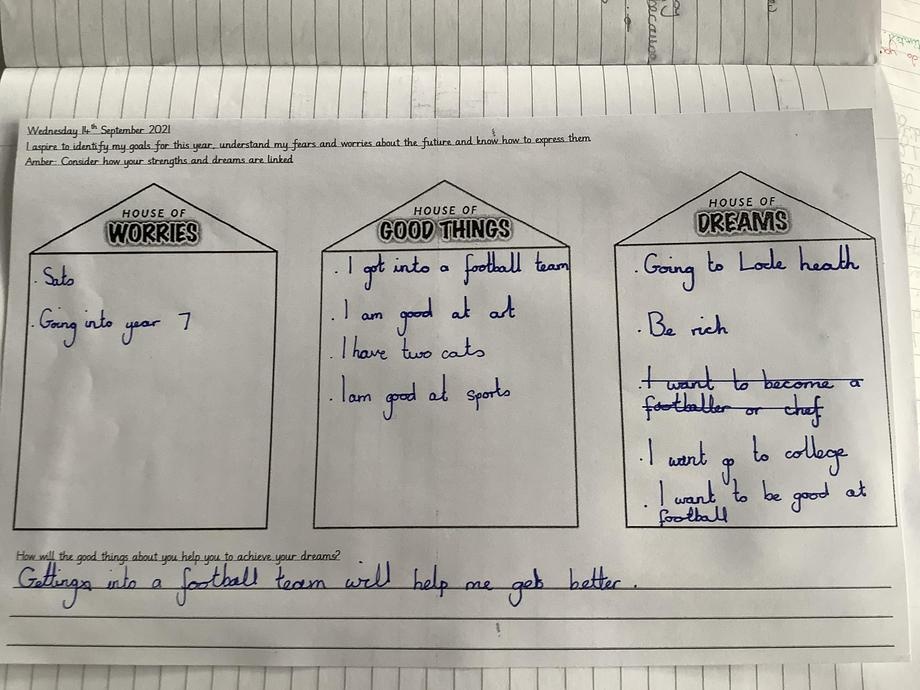 Wednesday 14th September 2021
I aspire to identify my goals for this year, understand my fears and worries about the future and know how to express them
Amber: Consider how your strengths and dreams are linked
HOUSE OF
WORRIES
. Sats
. Going into year 7
HOUSE OF
GOOD THINGS
. I got into a football team
. I am good at art
. I have two cats
. I am good at sports
HOUSE OF
DREAMS
. Going to Lode heath
. Be rich
. I want to become a
footballer or chef
. I want go to college
. I want to be good at
football
How will the good things about you help you to achieve your dreams?
Gettings into a football team will help me gets better.
because